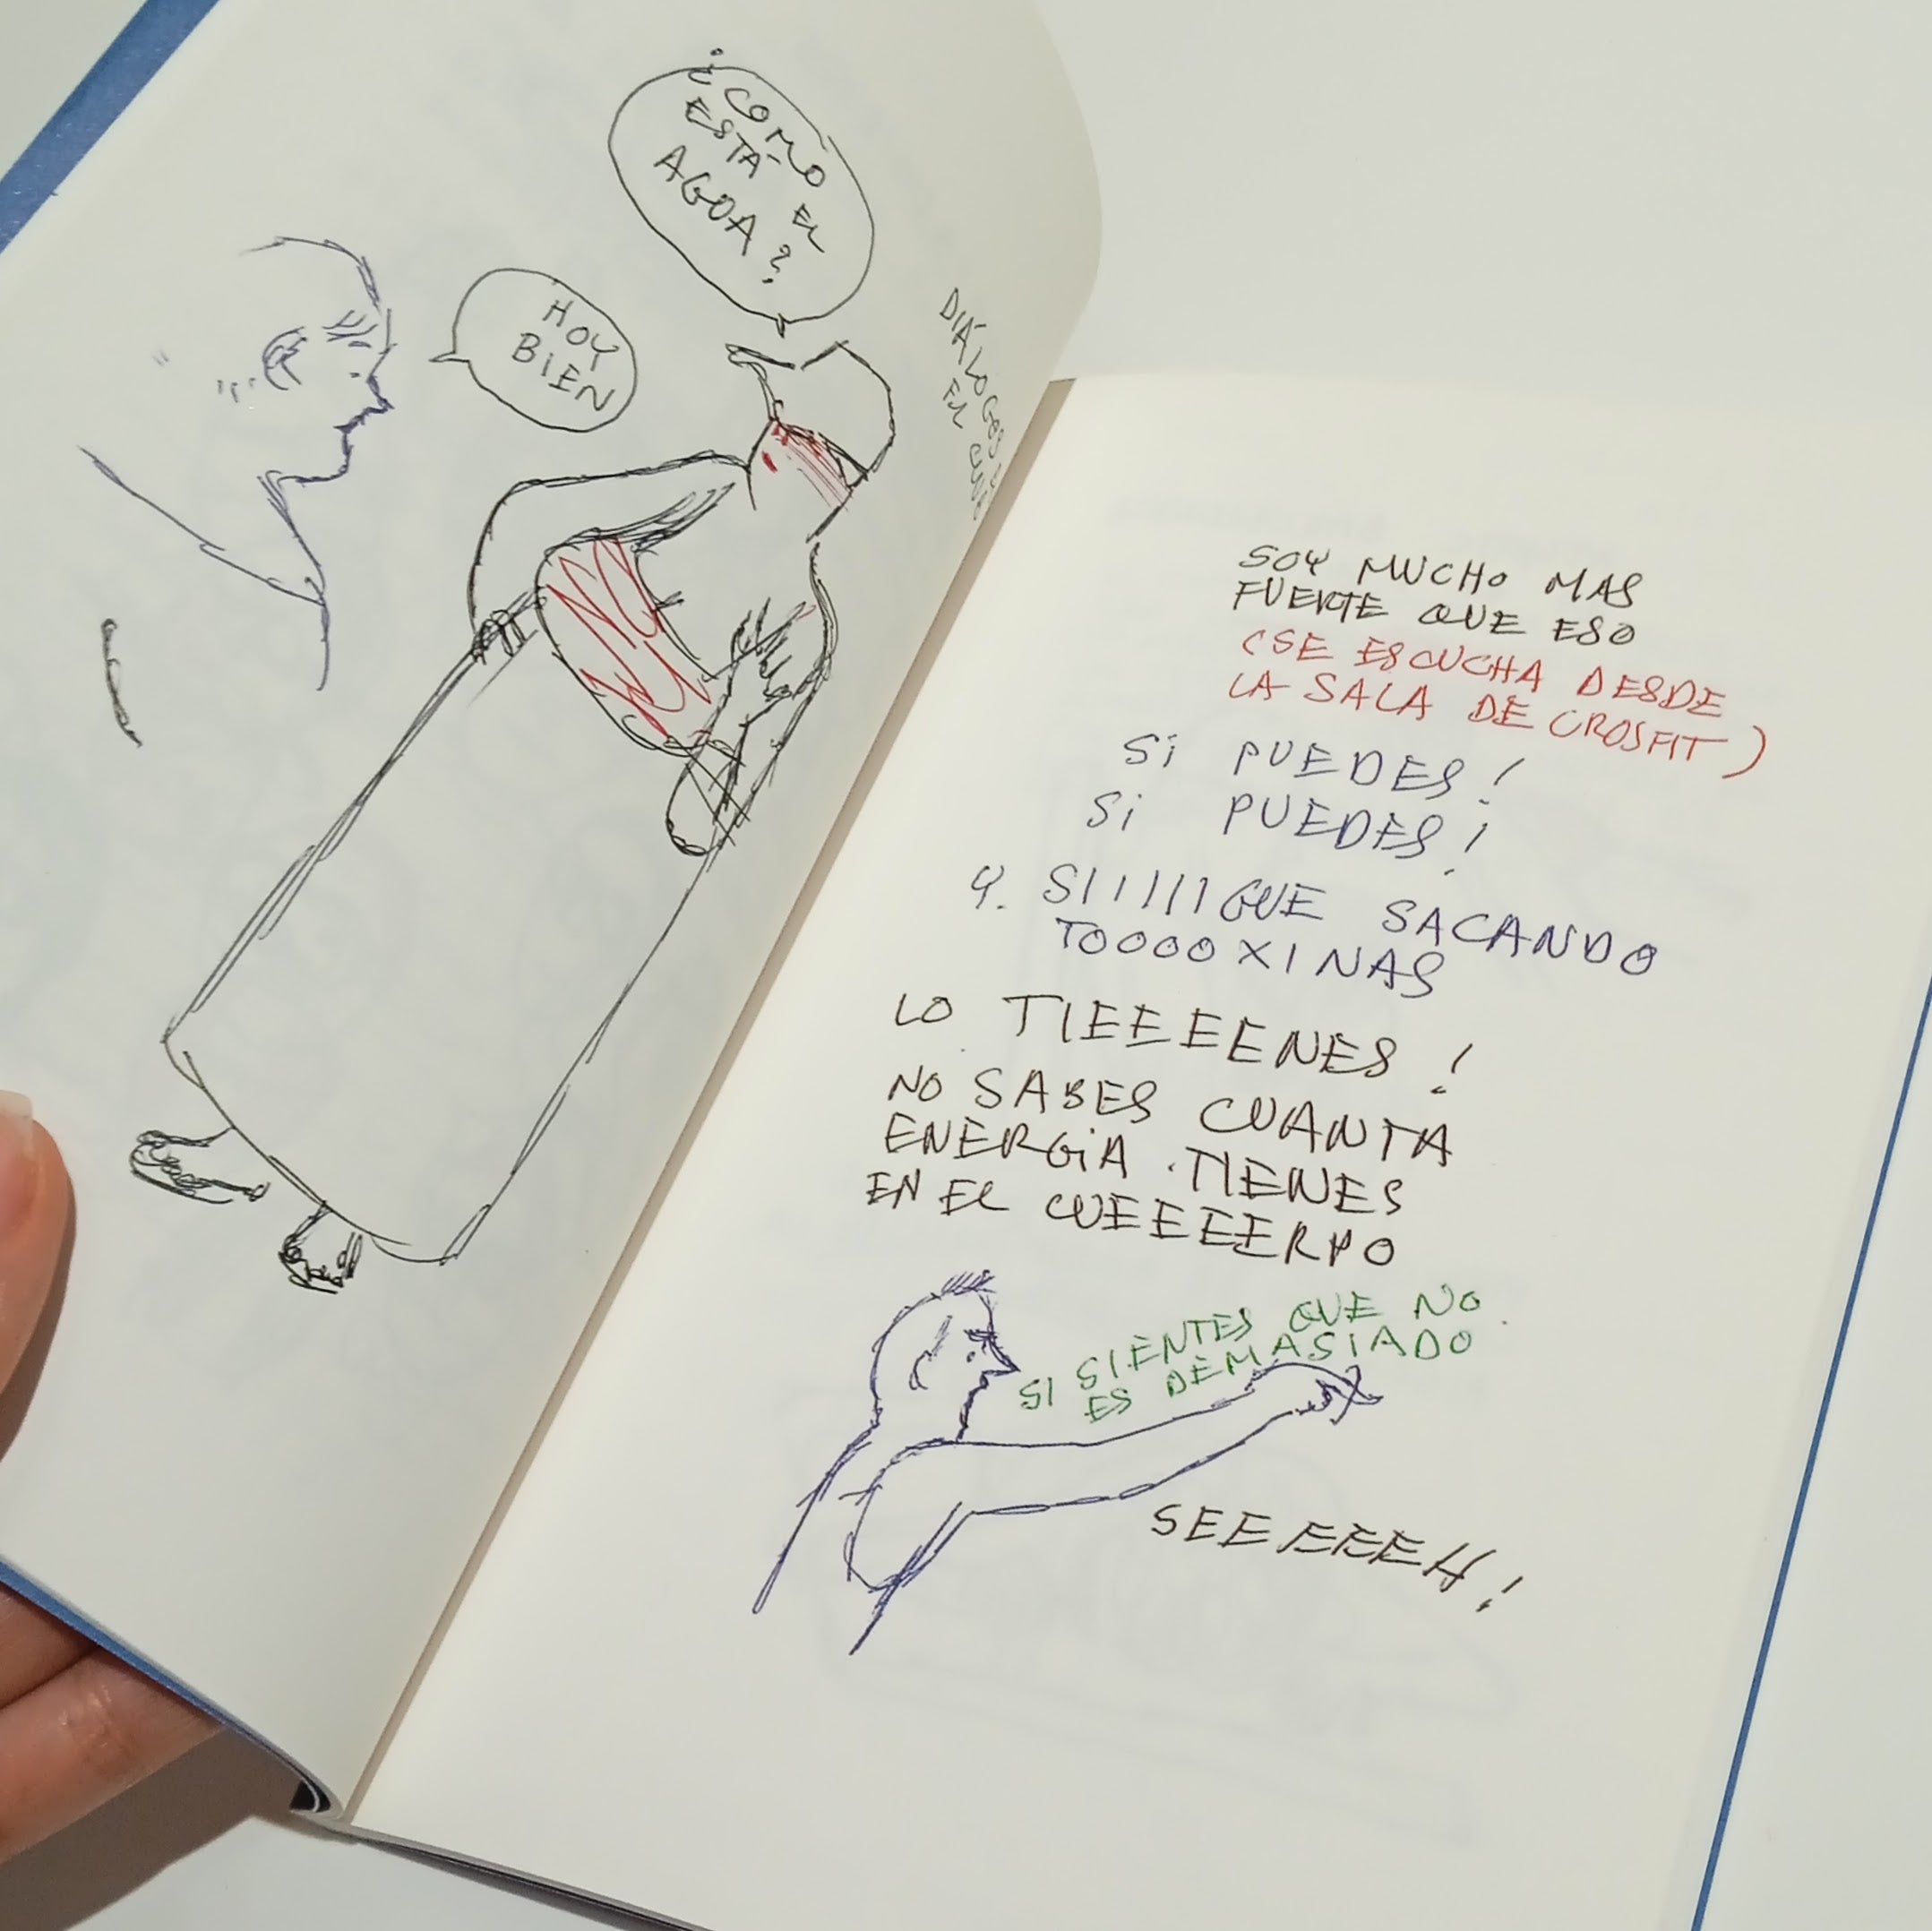 ¿COMO
ESTÁ EL
AGUA?
HOY
BIEN
DIÁLOGOS
EL
SOY MUCHO MAS
FUERTE QUE ESO
(SE ESCUCHA DESDE
LA SALA DE CROSFIT)
Si PUEDES!
Si PUEDES!
Y. SIIIIIIGUE SACANDO
TOOOOXINAS
LO TIEEEEENES!
NO SABES CUANTA
ENERGiA TIENES
EN EL CUEEEEERPO
SI SIENTES QUE NO
ES DEMASIADO
SEEEEEEH!